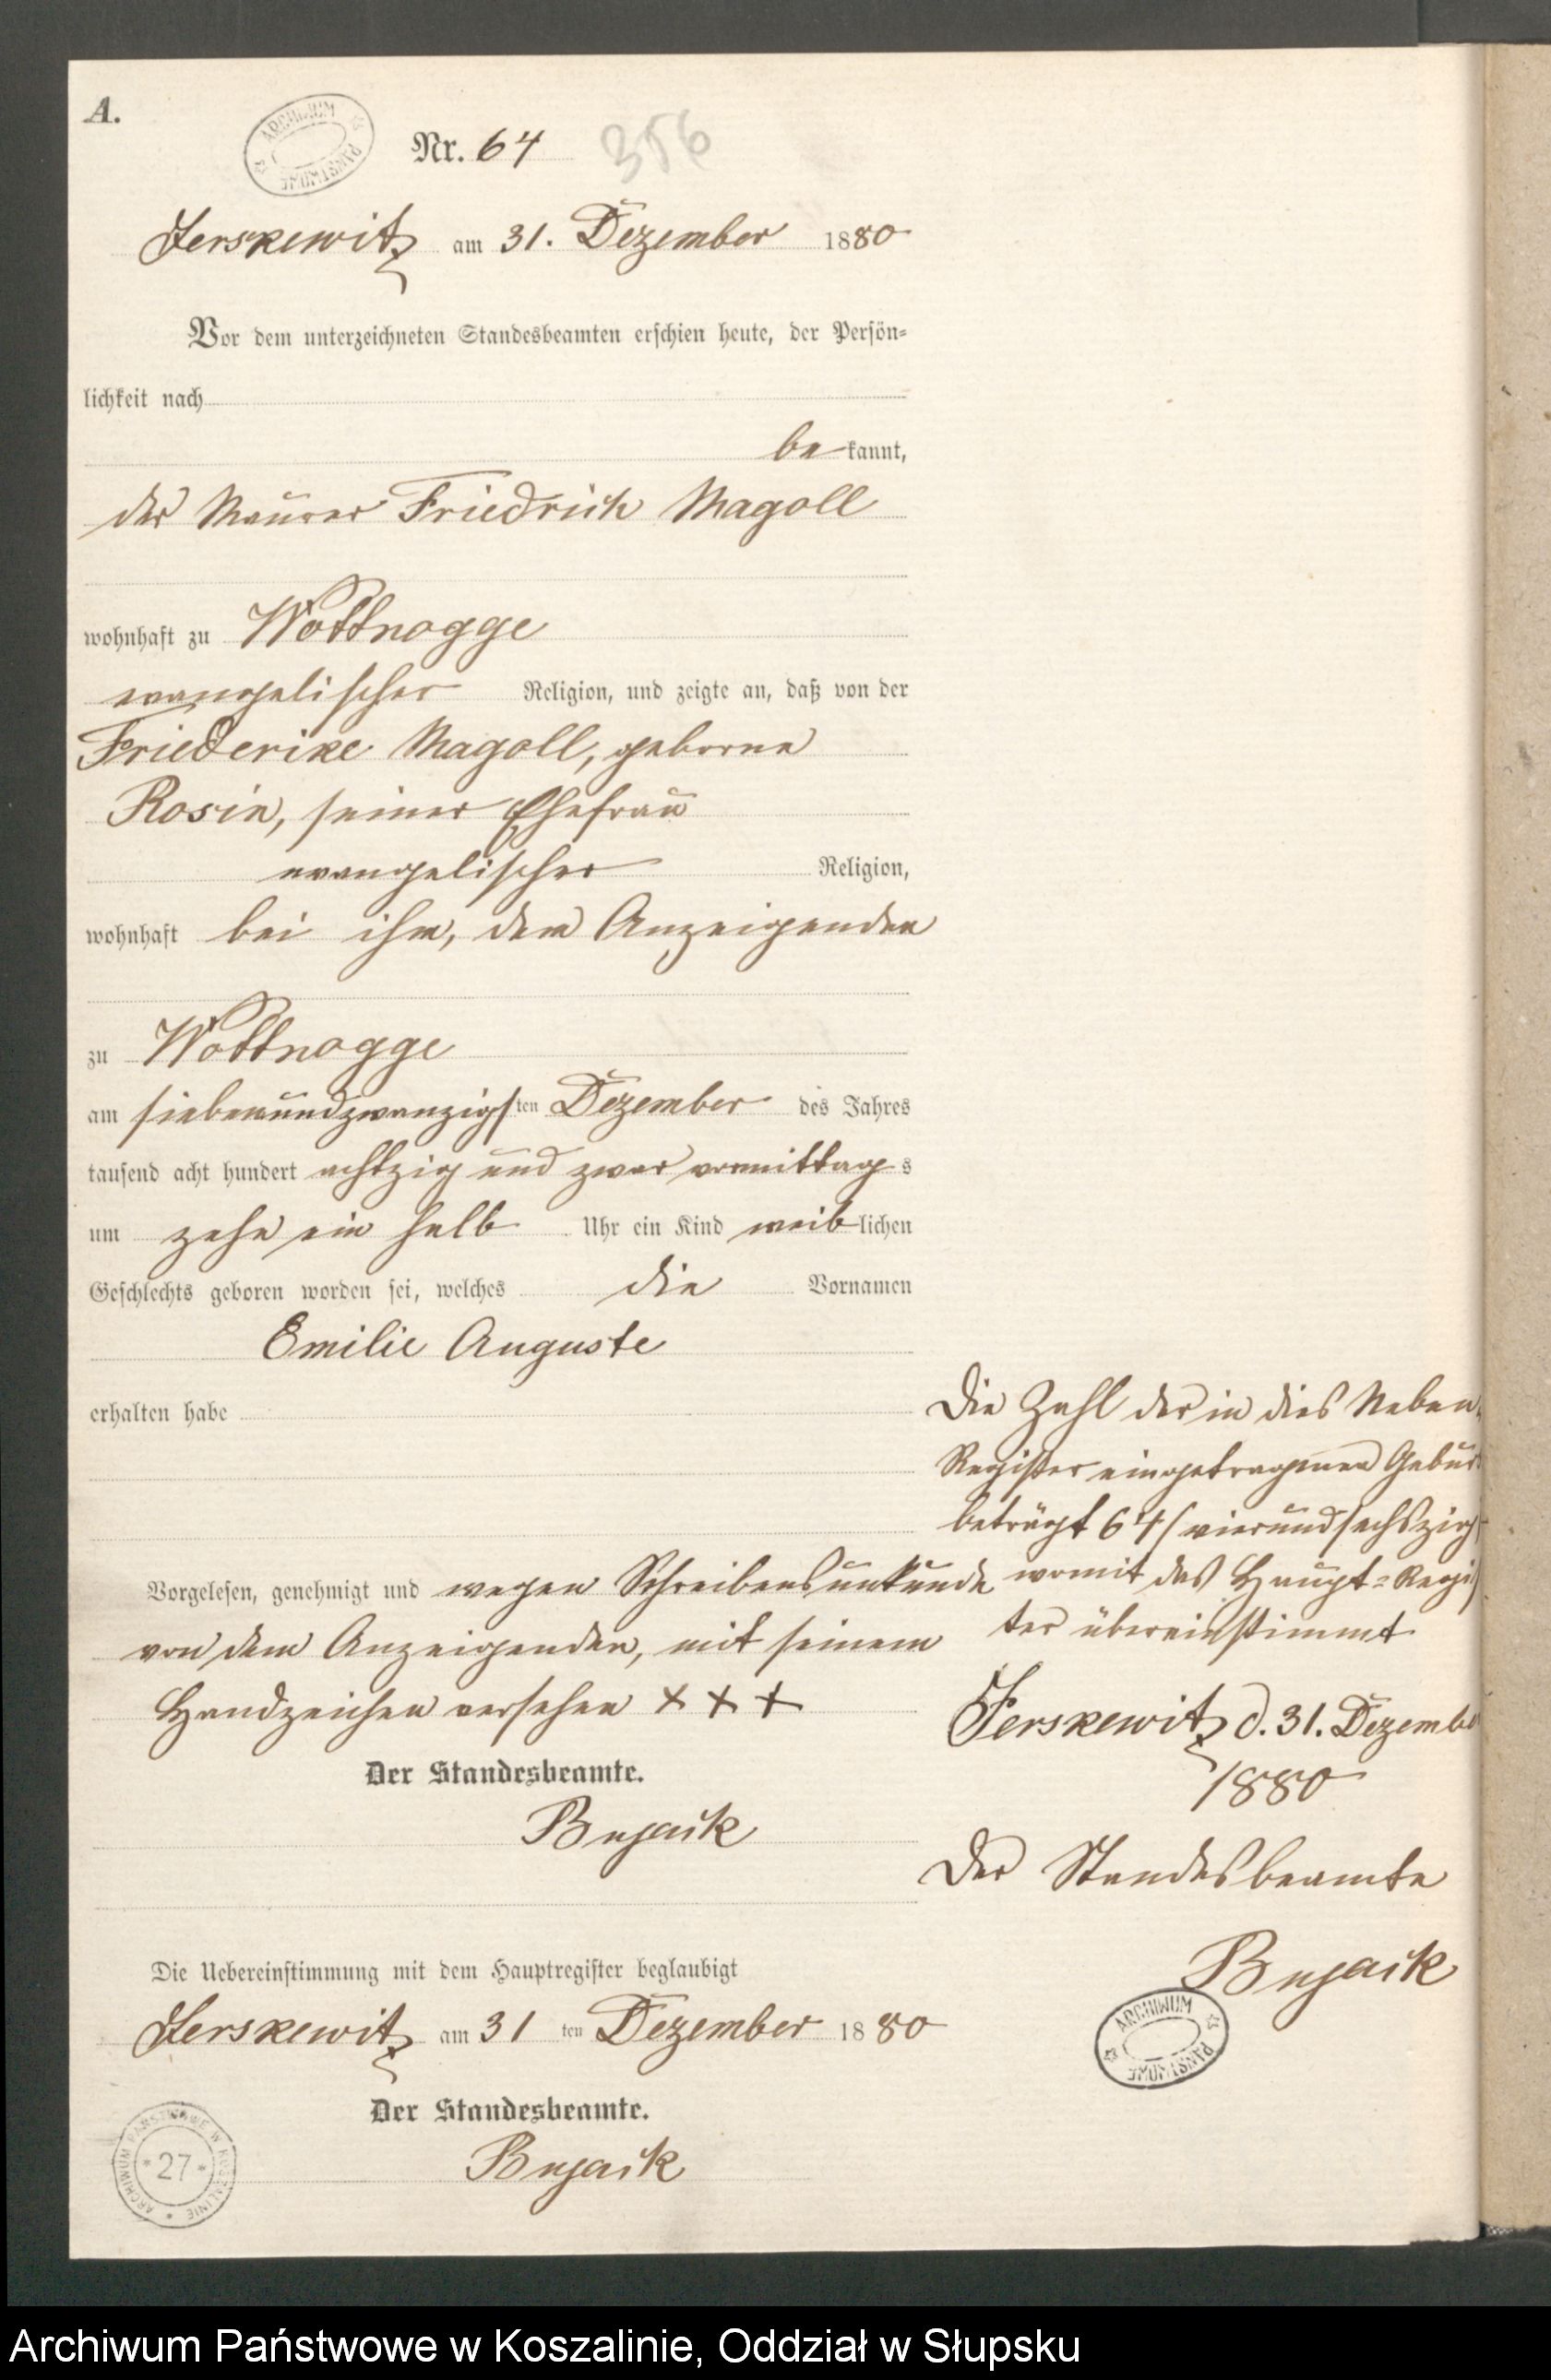 A.
ARCHIWUM PAŃSTWOWE
Nr. 64
356
Jerskewitz am 31. Dezember 1880
Vor dem unterzeichneten Standesbeamten erschien heute, der Persön-
lichkeit nach
be kannt,
der Maurer Friedrich Magoll
wohnhaft zu Wottnogge
evangelischer Religion, und zeigte an, daß von der
Friederike Magoll, geborne
Rosin, seiner Ehefrau
evangelischer Religion,
wohnhaft bei ihm, dem Anzeigenden
zu Wottnogge
am siebenundzwanzigsten Dezember des Jahres
tausend acht hundert achtzig und zwar vormittags
um zehn ein halb Uhr ein Kind weiblichen
Geschlechts geboren worden sei, welches die Vornamen
Emilie Auguste
erhalten habe
Vorgelesen, genehmigt und wegen Schreibensunkunde
von dem Anzeigenden, mit seinem
Handzeichen versehen + + +
Der Standesbeamte.
Bujack
Die Uebereinstimmung mit dem Hauptregister beglaubigt
Jerskewitz am 31 ten Dezember 1880
Der Standesbeamte.
Bujack
ARCHIWUM PAŃSTWOWE W KOSZALINIE
27
Die Zahl der in dies Neben-
Register eingetragenen Gebur
beträgt 64 (vierundsechszig)
womit das Haupt-Regis
ter übereinstimmt
Jerskewitz d. 31. Dezember
1880
Der Standesbeamte
Bujack
ARCHIWUM PAŃSTWOWE
Archiwum Państwowe w Koszalinie, Oddział w Słupsku